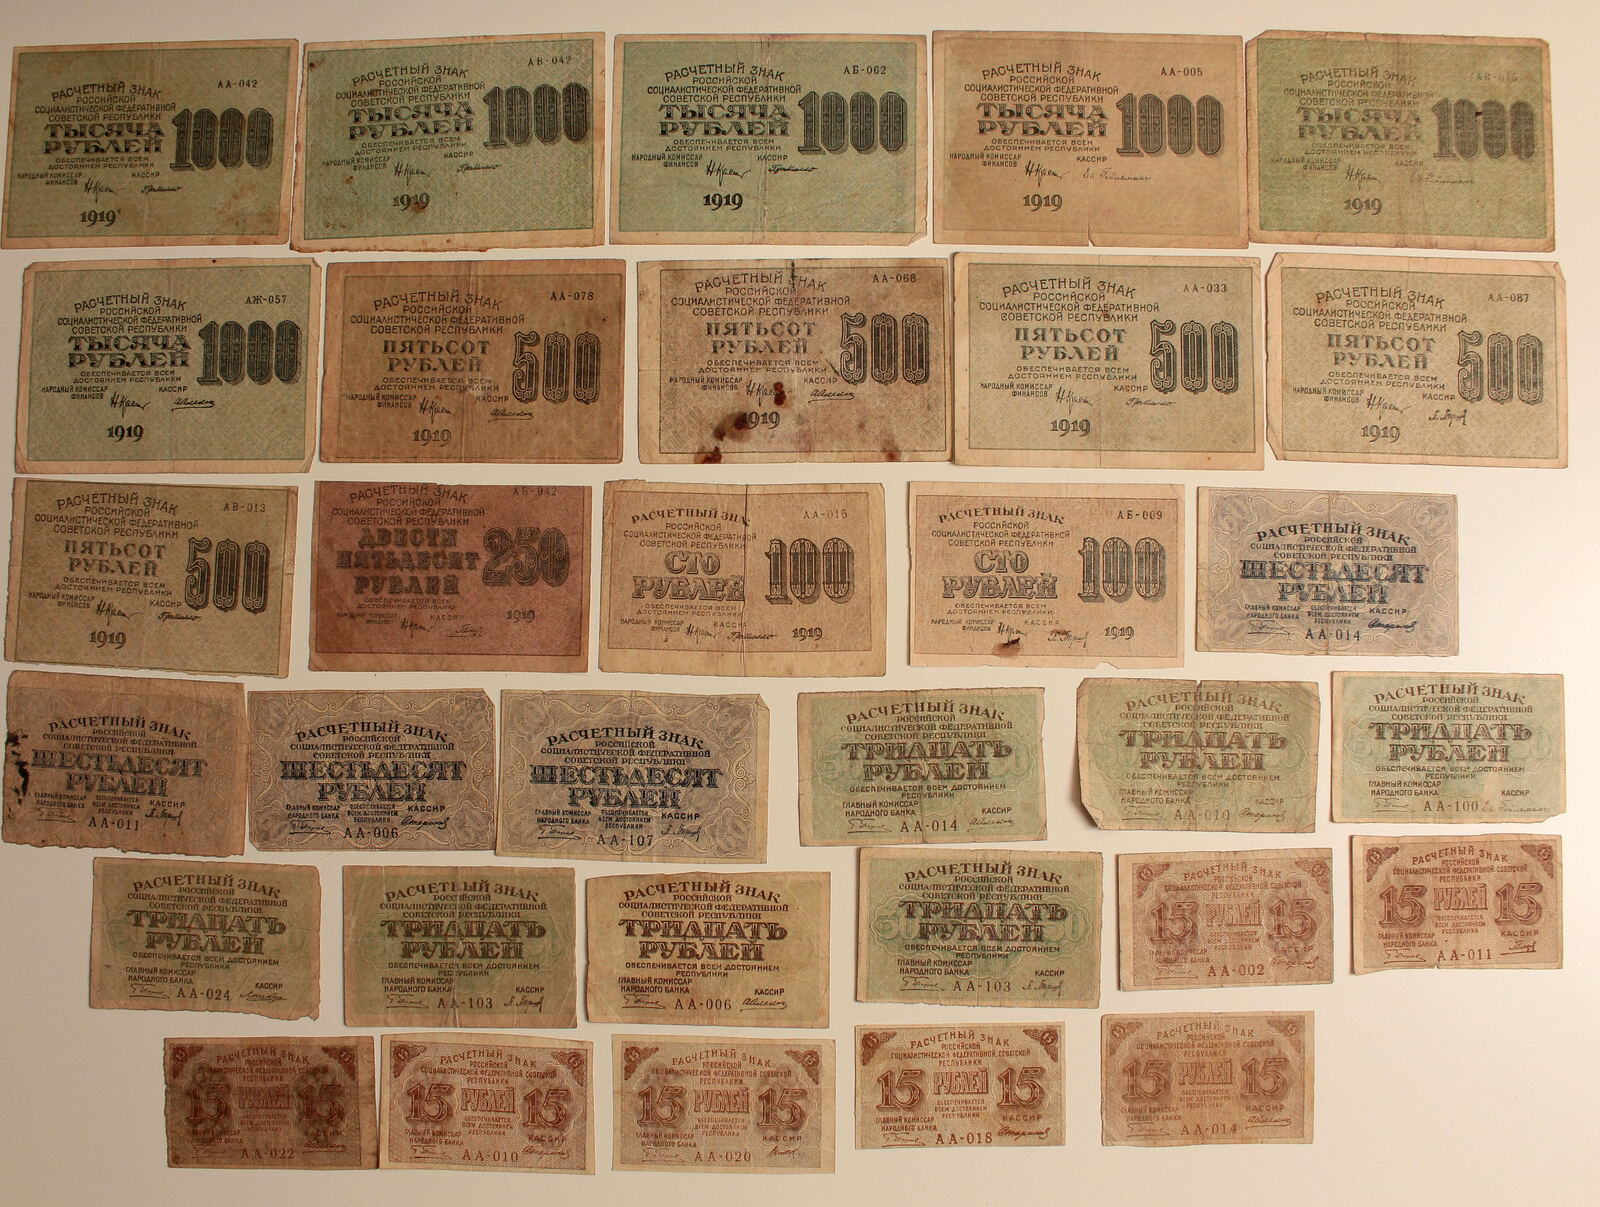 РАСЧЕТНЫЙ ЗНАК
АА-042
РОССИЙСКОЙ
СОЦИАЛИСТИЧЕСКОЙ ФЕДЕРАТИВНОЙ
СОВЕТСКОЙ РЕСПУБЛИКИ
ТЫСЯЧА
РУБЛЕЙ
1000
ОБЕСПЕЧИВАЕТСЯ ВСЕМ
ДОСТОЯНИЕМ РЕСПУБЛИКИ
НАРОДНЫЙ КОМИССАР
ФИНАНСОВ
КАССИР
1919
РАСЧЕТНЫЙ ЗНАК
АВ-042
РОССИЙСКОЙ
СОЦИАЛИСТИЧЕСКОЙ ФЕДЕРАТИВНОЙ
СОВЕТСКОЙ РЕСПУБЛИКИ
ТЫСЯЧА
РУБЛЕЙ
1000
ОБЕСПЕЧИВАЕТСЯ ВСЕМ
ДОСТОЯНИЕМ РЕСПУБЛИКИ
НАРОДНЫЙ КОМИССАР
ФИНАНСОВ
КАССИР
1919
РАСЧЕТНЫЙ ЗНАК
АБ-062
РОССИЙСКОЙ
СОЦИАЛИСТИЧЕСКОЙ ФЕДЕРАТИВНОЙ
СОВЕТСКОЙ РЕСПУБЛИКИ
ТЫСЯЧА
РУБЛЕЙ
1000
ОБЕСПЕЧИВАЕТСЯ ВСЕМ
ДОСТОЯНИЕМ РЕСПУБЛИКИ
НАРОДНЫЙ КОМИССАР
ФИНАНСОВ
КАССИР
1919
РАСЧЕТНЫЙ ЗНАК
АА-005
РОССИЙСКОЙ
СОЦИАЛИСТИЧЕСКОЙ ФЕДЕРАТИВНОЙ
СОВЕТСКОЙ РЕСПУБЛИКИ
ТЫСЯЧА
РУБЛЕЙ
1000
ОБЕСПЕЧИВАЕТСЯ ВСЕМ
ДОСТОЯНИЕМ РЕСПУБЛИКИ
НАРОДНЫЙ КОМИССАР
ФИНАНСОВ
КАССИР
1919
РАСЧЕТНЫЙ ЗНАК
РОССИЙСКОЙ
СОЦИАЛИСТИЧЕСКОЙ ФЕДЕРАТИВНОЙ
СОВЕТСКОЙ РЕСПУБЛИКИ
ТЫСЯЧА
РУБЛЕЙ
1000
ОБЕСПЕЧИВАЕТСЯ ВСЕМ
ДОСТОЯНИЕМ РЕСПУБЛИКИ
НАРОДНЫЙ КОМИССАР
ФИНАНСОВ
КАССИР
1919
РАСЧЕТНЫЙ ЗНАК
АЖ-057
РОССИЙСКОЙ
СОЦИАЛИСТИЧЕСКОЙ ФЕДЕРАТИВНОЙ
СОВЕТСКОЙ РЕСПУБЛИКИ
ТЫСЯЧА
РУБЛЕЙ
1000
ОБЕСПЕЧИВАЕТСЯ ВСЕМ
ДОСТОЯНИЕМ РЕСПУБЛИКИ
НАРОДНЫЙ КОМИССАР
ФИНАНСОВ
КАССИР
1919
РАСЧЕТНЫЙ ЗНАК
АА-078
РОССИЙСКОЙ
СОЦИАЛИСТИЧЕСКОЙ ФЕДЕРАТИВНОЙ
СОВЕТСКОЙ РЕСПУБЛИКИ
ПЯТЬСОТ
РУБЛЕЙ
500
ОБЕСПЕЧИВАЕТСЯ ВСЕМ
ДОСТОЯНИЕМ РЕСПУБЛИКИ
НАРОДНЫЙ КОМИССАР
ФИНАНСОВ
КАССИР
1919
РАСЧЕТНЫЙ ЗНАК
АА-068
РОССИЙСКОЙ
СОЦИАЛИСТИЧЕСКОЙ ФЕДЕРАТИВНОЙ
СОВЕТСКОЙ РЕСПУБЛИКИ
ПЯТЬСОТ
РУБЛЕЙ
500
ОБЕСПЕЧИВАЕТСЯ ВСЕМ
ДОСТОЯНИЕМ РЕСПУБЛИКИ
НАРОДНЫЙ КОМИССАР
ФИНАНСОВ
КАССИР
1919
РАСЧЕТНЫЙ ЗНАК
АА-033
РОССИЙСКОЙ
СОЦИАЛИСТИЧЕСКОЙ ФЕДЕРАТИВНОЙ
СОВЕТСКОЙ РЕСПУБЛИКИ
ПЯТЬСОТ
РУБЛЕЙ
500
ОБЕСПЕЧИВАЕТСЯ ВСЕМ
ДОСТОЯНИЕМ РЕСПУБЛИКИ
НАРОДНЫЙ КОМИССАР
ФИНАНСОВ
КАССИР
1919
РАСЧЕТНЫЙ ЗНАК
АА-087
РОССИЙСКОЙ
СОЦИАЛИСТИЧЕСКОЙ ФЕДЕРАТИВНОЙ
СОВЕТСКОЙ РЕСПУБЛИКИ
ПЯТЬСОТ
РУБЛЕЙ
500
ОБЕСПЕЧИВАЕТСЯ ВСЕМ
ДОСТОЯНИЕМ РЕСПУБЛИКИ
НАРОДНЫЙ КОМИССАР
ФИНАНСОВ
КАССИР
1919
РАСЧЕТНЫЙ ЗНАК
АВ-013
РОССИЙСКОЙ
СОЦИАЛИСТИЧЕСКОЙ ФЕДЕРАТИВНОЙ
СОВЕТСКОЙ РЕСПУБЛИКИ
ПЯТЬСОТ
РУБЛЕЙ
500
ОБЕСПЕЧИВАЕТСЯ ВСЕМ
ДОСТОЯНИЕМ РЕСПУБЛИКИ
НАРОДНЫЙ КОМИССАР
ФИНАНСОВ
КАССИР
1919
РАСЧЕТНЫЙ ЗНАК
АБ-042
РОССИЙСКОЙ
СОЦИАЛИСТИЧЕСКОЙ ФЕДЕРАТИВНОЙ
СОВЕТСКОЙ РЕСПУБЛИКИ
ДВЕСТИ
ПЯТЬДЕСЯТ
РУБЛЕЙ
250
ОБЕСПЕЧИВАЕТСЯ ВСЕМ
ДОСТОЯНИЕМ РЕСПУБЛИКИ
КАССИР
1919
РАСЧЕТНЫЙ ЗНАК
АА-015
РОССИЙСКОЙ
СОЦИАЛИСТИЧЕСКОЙ ФЕДЕРАТИВНОЙ
СОВЕТСКОЙ РЕСПУБЛИКИ
СТО
РУБЛЕЙ
100
ОБЕСПЕЧИВАЕТСЯ ВСЕМ
ДОСТОЯНИЕМ РЕСПУБЛИКИ
НАРОДНЫЙ КОМИССАР
ФИНАНСОВ
КАССИР
1919
РАСЧЕТНЫЙ ЗНАК
АБ-009
РОССИЙСКОЙ
СОЦИАЛИСТИЧЕСКОЙ ФЕДЕРАТИВНОЙ
СОВЕТСКОЙ РЕСПУБЛИКИ
СТО
РУБЛЕЙ
100
ОБЕСПЕЧИВАЕТСЯ ВСЕМ
ДОСТОЯНИЕМ РЕСПУБЛИКИ
НАРОДНЫЙ КОМИССАР
ФИНАНСОВ
КАССИР
1919
РАСЧЕТНЫЙ ЗНАК
РОССИЙСКОЙ
СОЦИАЛИСТИЧЕСКОЙ ФЕДЕРАТИВНОЙ
СОВЕТСКОЙ РЕСПУБЛИКИ
ШЕСТЬДЕСЯТ
РУБЛЕЙ
ГЛАВНЫЙ КОМИССАР
НАРОДНОГО БАНКА
ОБЕСПЕЧИВАЕТСЯ
ВСЕМ ДОСТОЯНИЕМ
РЕСПУБЛИКИ
КАССИР
АА-014
РАСЧЕТНЫЙ ЗНАК
РОССИЙСКОЙ
СОЦИАЛИСТИЧЕСКОЙ ФЕДЕРАТИВНОЙ
СОВЕТСКОЙ РЕСПУБЛИКИ
ШЕСТЬДЕСЯТ
РУБЛЕЙ
ГЛАВНЫЙ КОМИССАР
НАРОДНОГО БАНКА
ОБЕСПЕЧИВАЕТСЯ
ВСЕМ ДОСТОЯНИЕМ
РЕСПУБЛИКИ
КАССИР
АА-011
РАСЧЕТНЫЙ ЗНАК
РОССИЙСКОЙ
СОЦИАЛИСТИЧЕСКОЙ ФЕДЕРАТИВНОЙ
СОВЕТСКОЙ РЕСПУБЛИКИ
ШЕСТЬДЕСЯТ
РУБЛЕЙ
ГЛАВНЫЙ КОМИССАР
НАРОДНОГО БАНКА
ОБЕСПЕЧИВАЕТСЯ
ВСЕМ ДОСТОЯНИЕМ
РЕСПУБЛИКИ
КАССИР
АА-006
РАСЧЕТНЫЙ ЗНАК
РОССИЙСКОЙ
СОЦИАЛИСТИЧЕСКОЙ ФЕДЕРАТИВНОЙ
СОВЕТСКОЙ РЕСПУБЛИКИ
ШЕСТЬДЕСЯТ
РУБЛЕЙ
ГЛАВНЫЙ КОМИССАР
НАРОДНОГО БАНКА
ОБЕСПЕЧИВАЕТСЯ
ВСЕМ ДОСТОЯНИЕМ
РЕСПУБЛИКИ
КАССИР
АА-107
РАСЧЕТНЫЙ ЗНАК
РОССИЙСКОЙ
СОЦИАЛИСТИЧЕСКОЙ ФЕДЕРАТИВНОЙ
СОВЕТСКОЙ РЕСПУБЛИКИ
ТРИДЦАТЬ
РУБЛЕЙ
ОБЕСПЕЧИВАЕТСЯ ВСЕМ ДОСТОЯНИЕМ
РЕСПУБЛИКИ
ГЛАВНЫЙ КОМИССАР
НАРОДНОГО БАНКА
КАССИР
АА-014
РАСЧЕТНЫЙ ЗНАК
РОССИЙСКОЙ
СОЦИАЛИСТИЧЕСКОЙ ФЕДЕРАТИВНОЙ
СОВЕТСКОЙ РЕСПУБЛИКИ
ТРИДЦАТЬ
РУБЛЕЙ
ОБЕСПЕЧИВАЕТСЯ ВСЕМ ДОСТОЯНИЕМ
РЕСПУБЛИКИ
ГЛАВНЫЙ КОМИССАР
НАРОДНОГО БАНКА
КАССИР
АА-010
РАСЧЕТНЫЙ ЗНАК
РОССИЙСКОЙ
СОЦИАЛИСТИЧЕСКОЙ ФЕДЕРАТИВНОЙ
СОВЕТСКОЙ РЕСПУБЛИКИ
ТРИДЦАТЬ
РУБЛЕЙ
ОБЕСПЕЧИВАЕТСЯ ВСЕМ ДОСТОЯНИЕМ
РЕСПУБЛИКИ
ГЛАВНЫЙ КОМИССАР
НАРОДНОГО БАНКА
КАССИР
АА-100
РАСЧЕТНЫЙ ЗНАК
РОССИЙСКОЙ
СОЦИАЛИСТИЧЕСКОЙ ФЕДЕРАТИВНОЙ
СОВЕТСКОЙ РЕСПУБЛИКИ
ТРИДЦАТЬ
РУБЛЕЙ
ОБЕСПЕЧИВАЕТСЯ ВСЕМ ДОСТОЯНИЕМ
РЕСПУБЛИКИ
ГЛАВНЫЙ КОМИССАР
НАРОДНОГО БАНКА
КАССИР
АА-024
РАСЧЕТНЫЙ ЗНАК
РОССИЙСКОЙ
СОЦИАЛИСТИЧЕСКОЙ ФЕДЕРАТИВНОЙ
СОВЕТСКОЙ РЕСПУБЛИКИ
ТРИДЦАТЬ
РУБЛЕЙ
ОБЕСПЕЧИВАЕТСЯ ВСЕМ ДОСТОЯНИЕМ
РЕСПУБЛИКИ
ГЛАВНЫЙ КОМИССАР
НАРОДНОГО БАНКА
КАССИР
АА-103
РАСЧЕТНЫЙ ЗНАК
РОССИЙСКОЙ
СОЦИАЛИСТИЧЕСКОЙ ФЕДЕРАТИВНОЙ
СОВЕТСКОЙ РЕСПУБЛИКИ
ТРИДЦАТЬ
РУБЛЕЙ
ОБЕСПЕЧИВАЕТСЯ ВСЕМ ДОСТОЯНИЕМ
РЕСПУБЛИКИ
ГЛАВНЫЙ КОМИССАР
НАРОДНОГО БАНКА
КАССИР
АА-006
РАСЧЕТНЫЙ ЗНАК
РОССИЙСКОЙ
СОЦИАЛИСТИЧЕСКОЙ ФЕДЕРАТИВНОЙ
СОВЕТСКОЙ РЕСПУБЛИКИ
ТРИДЦАТЬ
РУБЛЕЙ
ОБЕСПЕЧИВАЕТСЯ ВСЕМ ДОСТОЯНИЕМ
РЕСПУБЛИКИ
ГЛАВНЫЙ КОМИССАР
НАРОДНОГО БАНКА
КАССИР
АА-103
РАСЧЕТНЫЙ ЗНАК
РОССИЙСКОЙ
СОЦИАЛИСТИЧЕСКОЙ ФЕДЕРАТИВНОЙ СОВЕТСКОЙ
РЕСПУБЛИКИ
15 РУБЛЕЙ 15
ОБЕСПЕЧИВАЕТСЯ
ВСЕМ ДОСТОЯНИЕМ
РЕСПУБЛИКИ
ГЛАВНЫЙ КОМИССАР
НАРОДНОГО БАНКА
КАССИР
АА-002
РАСЧЕТНЫЙ ЗНАК
РОССИЙСКОЙ
СОЦИАЛИСТИЧЕСКОЙ ФЕДЕРАТИВНОЙ СОВЕТСКОЙ
РЕСПУБЛИКИ
15 РУБЛЕЙ 15
ОБЕСПЕЧИВАЕТСЯ
ВСЕМ ДОСТОЯНИЕМ
РЕСПУБЛИКИ
ГЛАВНЫЙ КОМИССАР
НАРОДНОГО БАНКА
КАССИР
АА-011
РАСЧЕТНЫЙ ЗНАК
РОССИЙСКОЙ
СОЦИАЛИСТИЧЕСКОЙ ФЕДЕРАТИВНОЙ СОВЕТСКОЙ
РЕСПУБЛИКИ
15 РУБЛЕЙ 15
ОБЕСПЕЧИВАЕТСЯ
ВСЕМ ДОСТОЯНИЕМ
РЕСПУБЛИКИ
ГЛАВНЫЙ КОМИССАР
НАРОДНОГО БАНКА
КАССИР
АА-022
РАСЧЕТНЫЙ ЗНАК
РОССИЙСКОЙ
СОЦИАЛИСТИЧЕСКОЙ ФЕДЕРАТИВНОЙ СОВЕТСКОЙ
РЕСПУБЛИКИ
15 РУБЛЕЙ 15
ОБЕСПЕЧИВАЕТСЯ
ВСЕМ ДОСТОЯНИЕМ
РЕСПУБЛИКИ
ГЛАВНЫЙ КОМИССАР
НАРОДНОГО БАНКА
КАССИР
АА-010
РАСЧЕТНЫЙ ЗНАК
РОССИЙСКОЙ
СОЦИАЛИСТИЧЕСКОЙ ФЕДЕРАТИВНОЙ СОВЕТСКОЙ
РЕСПУБЛИКИ
15 РУБЛЕЙ 15
ОБЕСПЕЧИВАЕТСЯ
ВСЕМ ДОСТОЯНИЕМ
РЕСПУБЛИКИ
ГЛАВНЫЙ КОМИССАР
НАРОДНОГО БАНКА
КАССИР
АА-020
РАСЧЕТНЫЙ ЗНАК
РОССИЙСКОЙ
СОЦИАЛИСТИЧЕСКОЙ ФЕДЕРАТИВНОЙ СОВЕТСКОЙ
РЕСПУБЛИКИ
15 РУБЛЕЙ 15
ОБЕСПЕЧИВАЕТСЯ
ВСЕМ ДОСТОЯНИЕМ
РЕСПУБЛИКИ
ГЛАВНЫЙ КОМИССАР
НАРОДНОГО БАНКА
КАССИР
АА-018
РАСЧЕТНЫЙ ЗНАК
РОССИЙСКОЙ
СОЦИАЛИСТИЧЕСКОЙ ФЕДЕРАТИВНОЙ СОВЕТСКОЙ
РЕСПУБЛИКИ
15 РУБЛЕЙ 15
ОБЕСПЕЧИВАЕТСЯ
ВСЕМ ДОСТОЯНИЕМ
РЕСПУБЛИКИ
ГЛАВНЫЙ КОМИССАР
НАРОДНОГО БАНКА
КАССИР
АА-014